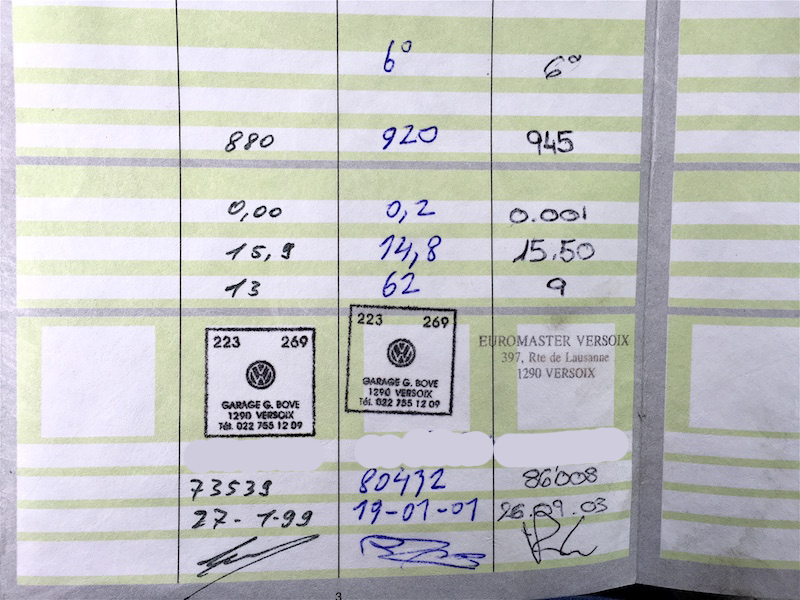 6° 6°
880 920 945
0,00 0,2 0.001
15,9 14,8 15.50
13 62 9
223 269
GARAGE G. BOVE
1290 VERSOIX
Tél. 022 755 12 09
223 269
GARAGE G. BOVE
1290 VERSOIX
Tél. 022 755 12 09
EUROMASTER VERSOIX
397, Rte de Lausanne
1290 VERSOIX
73539 80432 86'008
27-1-99 19-01-01 26.09.03
3